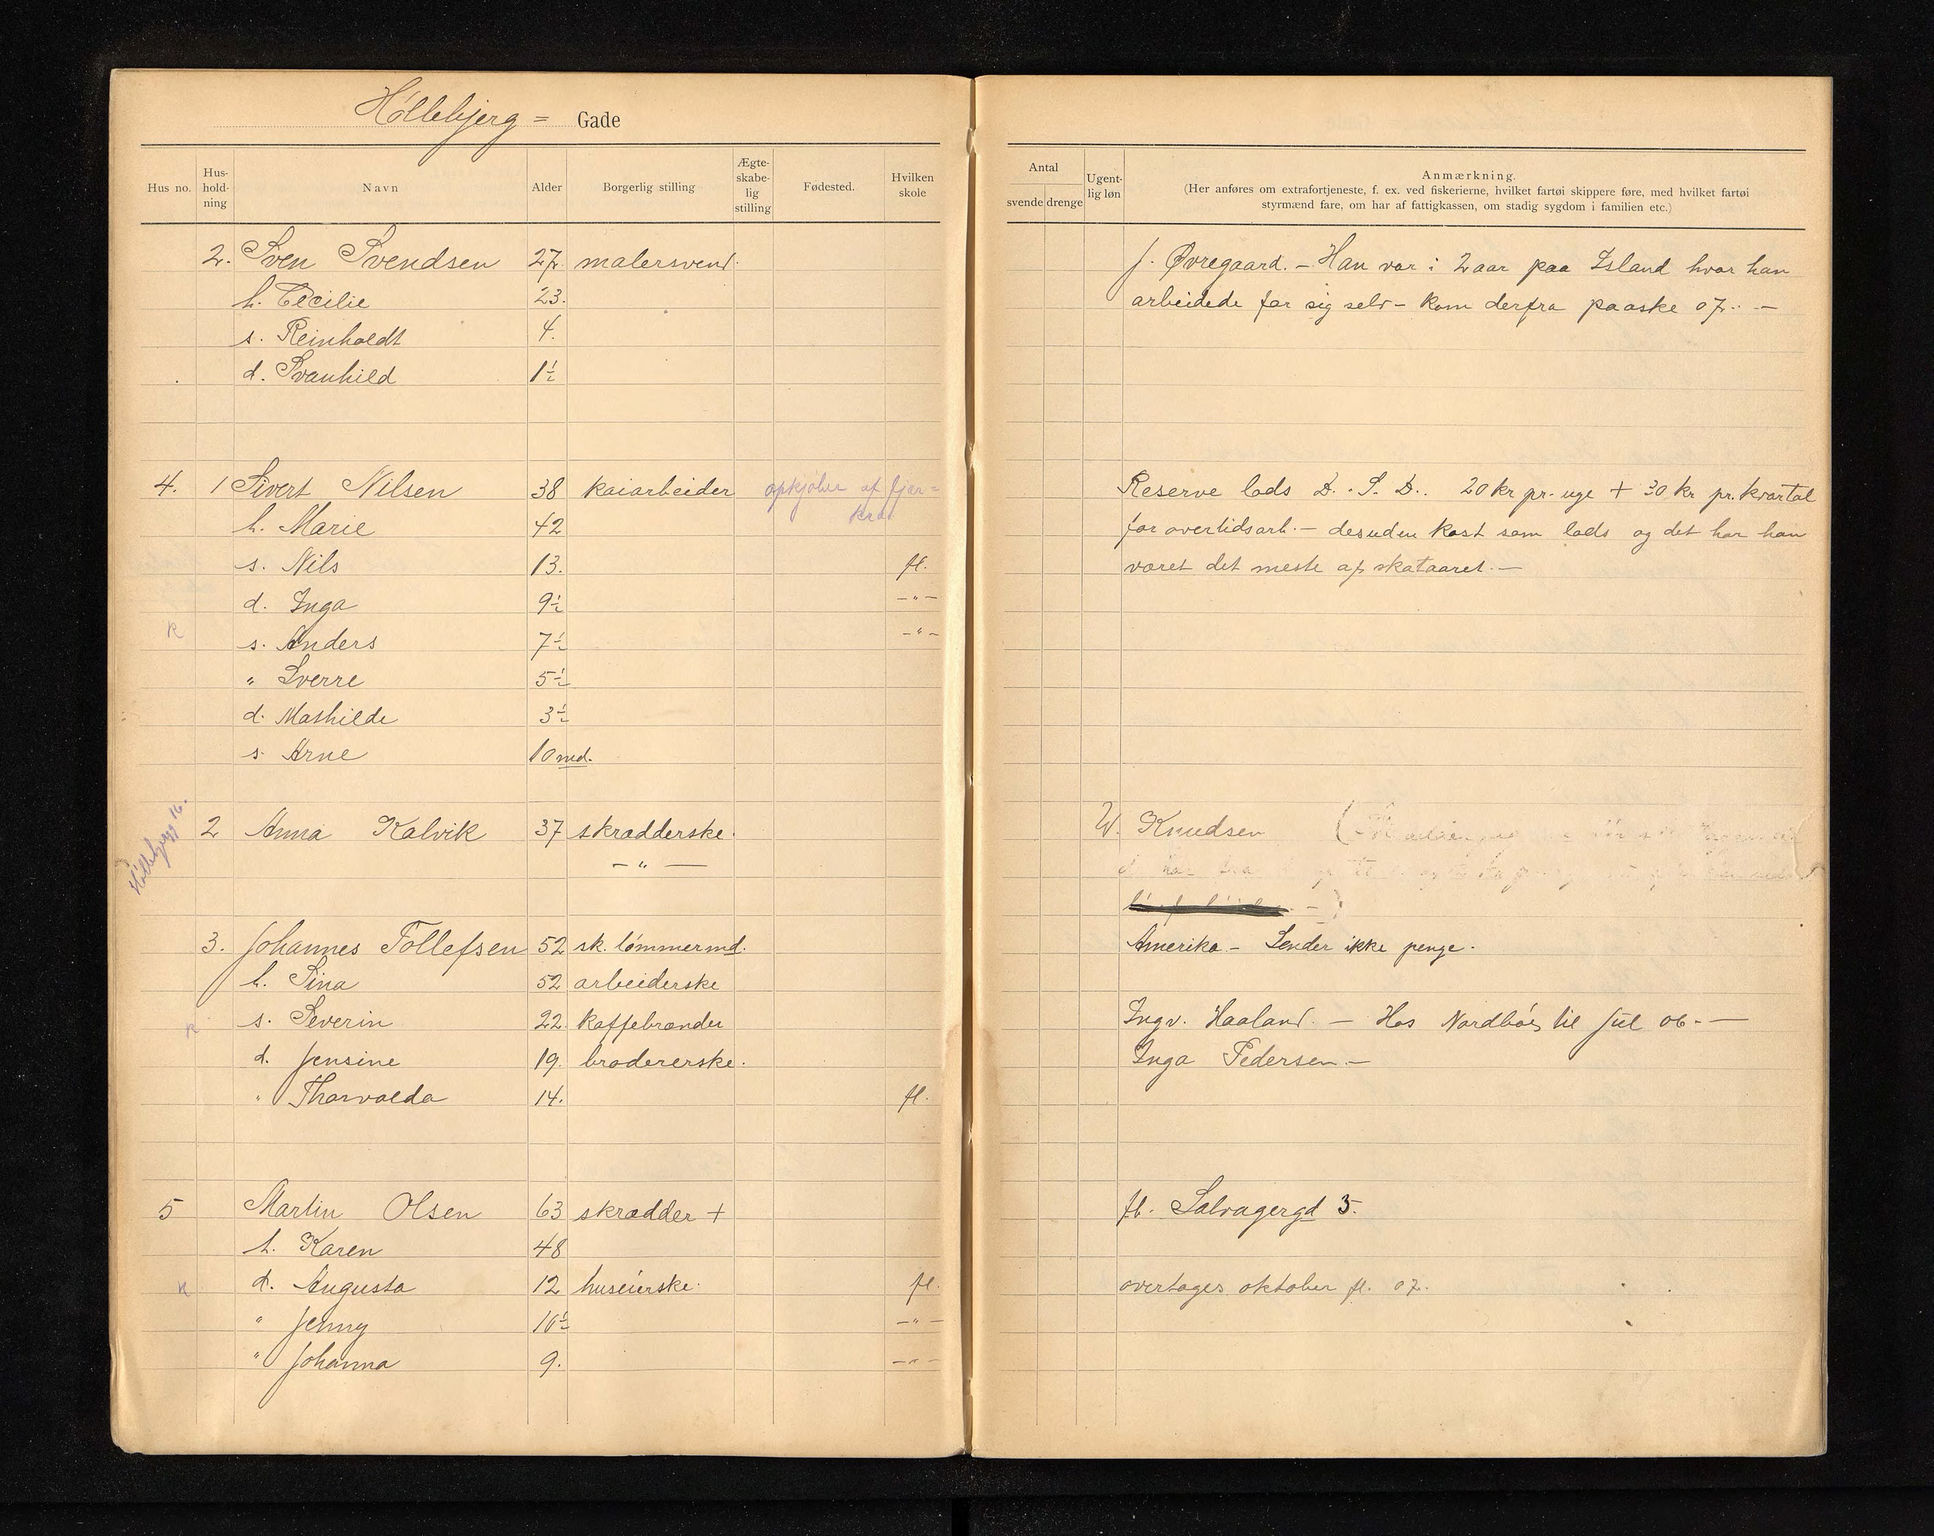 Höllebjerg = Gade
Hus no. Hus-hold-ning Navn Alder Borgerlig stilling Ægte-skabe-lig stilling Fødested. Hvilken skole
Antal svende drenge Ugent-lig løn Anmærkning.
(Her anføres om extrafortjeneste, f. ex. ved fiskerierne, hvilket fartøi skippere føre, med hvilket fartøi
styrmænd fare, om har af fattigkassen, om stadig sygdom i familien etc.)
2. Sven Svendsen 27. malersvend. f. Øvregaard. – Han var i 2 aar paa Island hvor han
h. Cecilie 23. arbeidede for sig selv – kom derfra paaske 07. –
s. Reinholdt 4.
d. Svanhild 1½
4. 1 Sivert Nilsen 38 kaiarbeider opkjøber af fjær= Reserve lods D. S. D. 20 kr pr. uge + 30 kr pr. kvartal
kræ
h. Marie 42 for overtidsarb. – desuden kost som lods og det har han
s. Nils 13. fl. været det meste af skataaret. –
d. Inga 9½ –"–
k s. Anders 7½ –"–
" Sverre 5½
d. Mathilde 3½
s. Arne 10 md.
Höllebjergg 16.
2 Anna Kalvik 37 skrædderske. W. Knudsen
–"–
3. Johannes Tollefsen 52 sk. tømmermd. Amerika – Sender ikke penge.
h. Sina 52 arbeiderske
k s. Severin 22. kaffebrænder Ingv. Haaland. – Hos Nordbö, til jul 06. –
d. Jensine 19. brodererske. Inga Pedersen. –
" Thorvalda 14. fl.
5 Martin Olsen 63 skrædder + fl. Salvagergd 3.
h. Karen 48
k d. Augusta 12 huseierske. fl. overtages oktober fl. 07.
" Jenny 10½ –"–
" Johanna 9. –"–